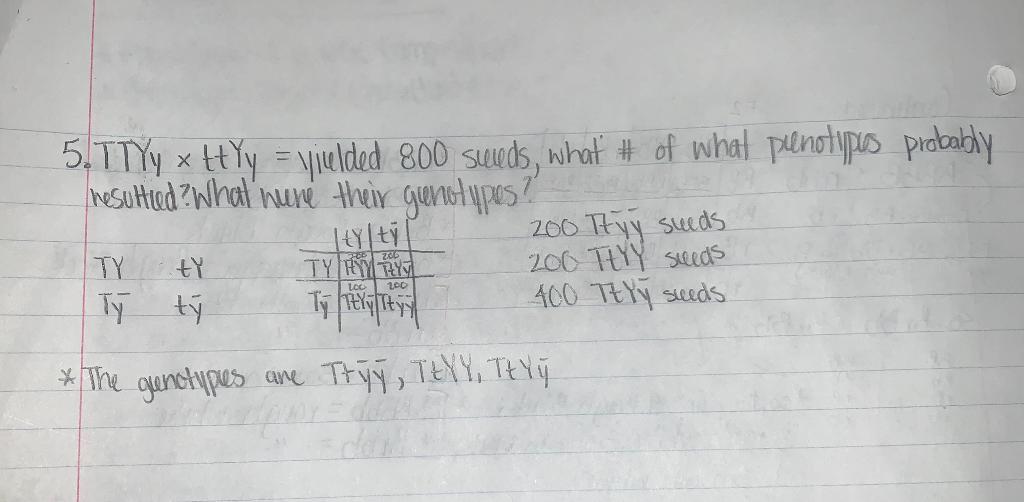 5. TTYy x ttYy = yielded 800 seeds, what # of what phenotypes probably
resulted? What were their genotypes?
tY tȳ
TY tY
TY TtYY 200 TtYȳ 200
Tȳ tȳ
Tȳ TtYȳ 200 Ttȳȳ 200
200 Ttȳȳ seeds
200 TtYY seeds
400 TtYȳ seeds
* The genotypes are Ttȳȳ, TtYY, TtYȳ